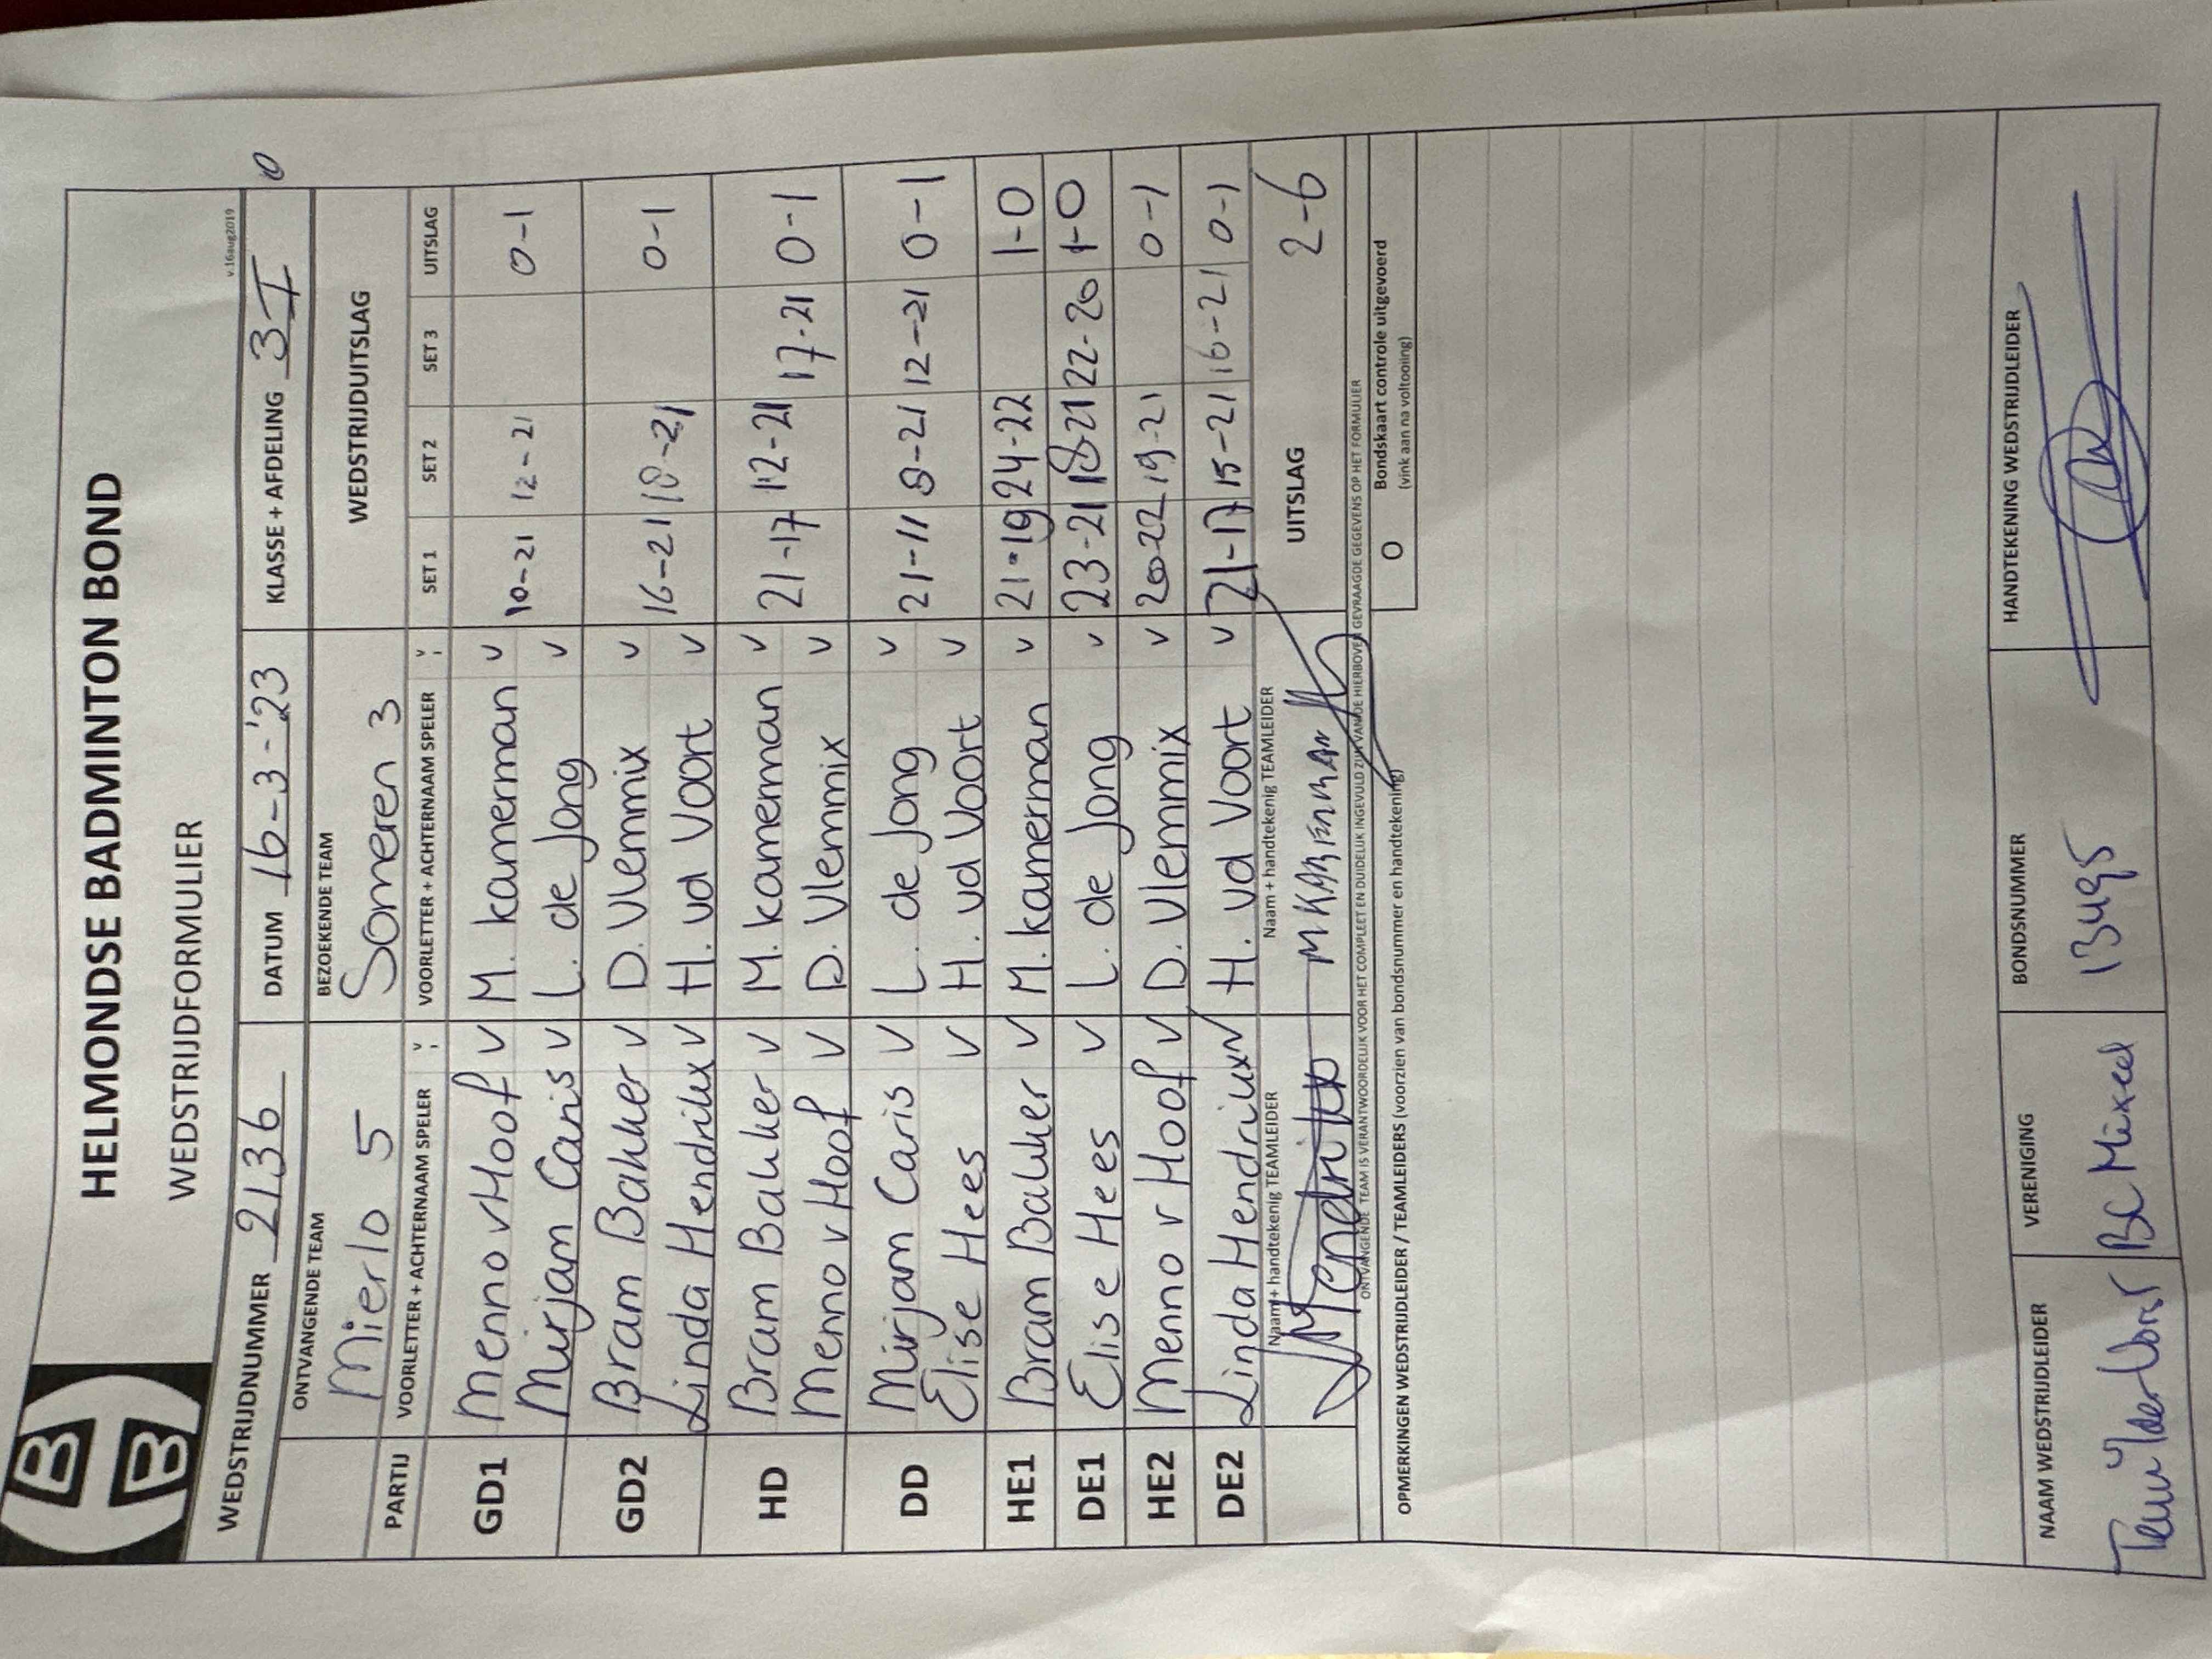 HELMONDSE BADMINTON BOND
WEDSTRIJDFORMULIER
v.16aug2019
WEDSTRIJDNUMMER 2136 DATUM 16-3-'23 KLASSE + AFDELING 3-I
ONTVANGENDE TEAM BEZOEKENDE TEAM WEDSTRIJDUITSLAG
Mierlo 5 Someren 3
PARTIJ VOORLETTER + ACHTERNAAM SPELER V VOORLETTER + ACHTERNAAM SPELER V SET 1 SET 2 SET 3 UITSLAG
GD1 Menno v Hoof v M. Kamerman v 10-21 12-21 0-1
Mirjam Caris v L. de Jong v
GD2 Bram Bakker v D. Vlemmix v 16-21 18-21 0-1
Linda Hendrikx v H. vd Voort v
HD Bram Bakker v M. Kamerman v 21-17 12-21 17-21 0-1
Menno v Hoof v D. Vlemmix v
DD Mirjam Caris v L. de Jong v 21-11 8-21 12-21 0-1
Elise Hees v H. vd Voort v
HE1 Bram Bakker v M. Kamerman v 21-19 24-22 1-0
DE1 Elise Hees v L. de Jong v 23-21 18-21 22-20 1-0
HE2 Menno v Hoof v D. Vlemmix v 20-22 19-21 0-1
DE2 Linda Hendrikx v H. vd Voort v 21-17 15-21 16-21 0-1
Naam + handtekenig TEAMLEIDER Naam + handtekenig TEAMLEIDER UITSLAG 2-6
Hendrikx M KAMERMAN
ONTVANGENDE TEAM IS VERANTWOORDELIJK VOOR HET COMPLEET EN DUIDELIJK INGEVULD ZIJN VAN DE HIERBOVEN GEVRAAGDE GEGEVENS OP HET FORMULIER
OPMERKINGEN WEDSTRIJDLEIDER / TEAMLEIDERS (voorzien van bondsnummer en handtekening) O Bondskaart controle uitgevoerd
(vink aan na voltooiing)
NAAM WEDSTRIJDLEIDER VERENIGING BONDSNUMMER HANDTEKENING WEDSTRIJDLEIDER
BC Mixed 13495